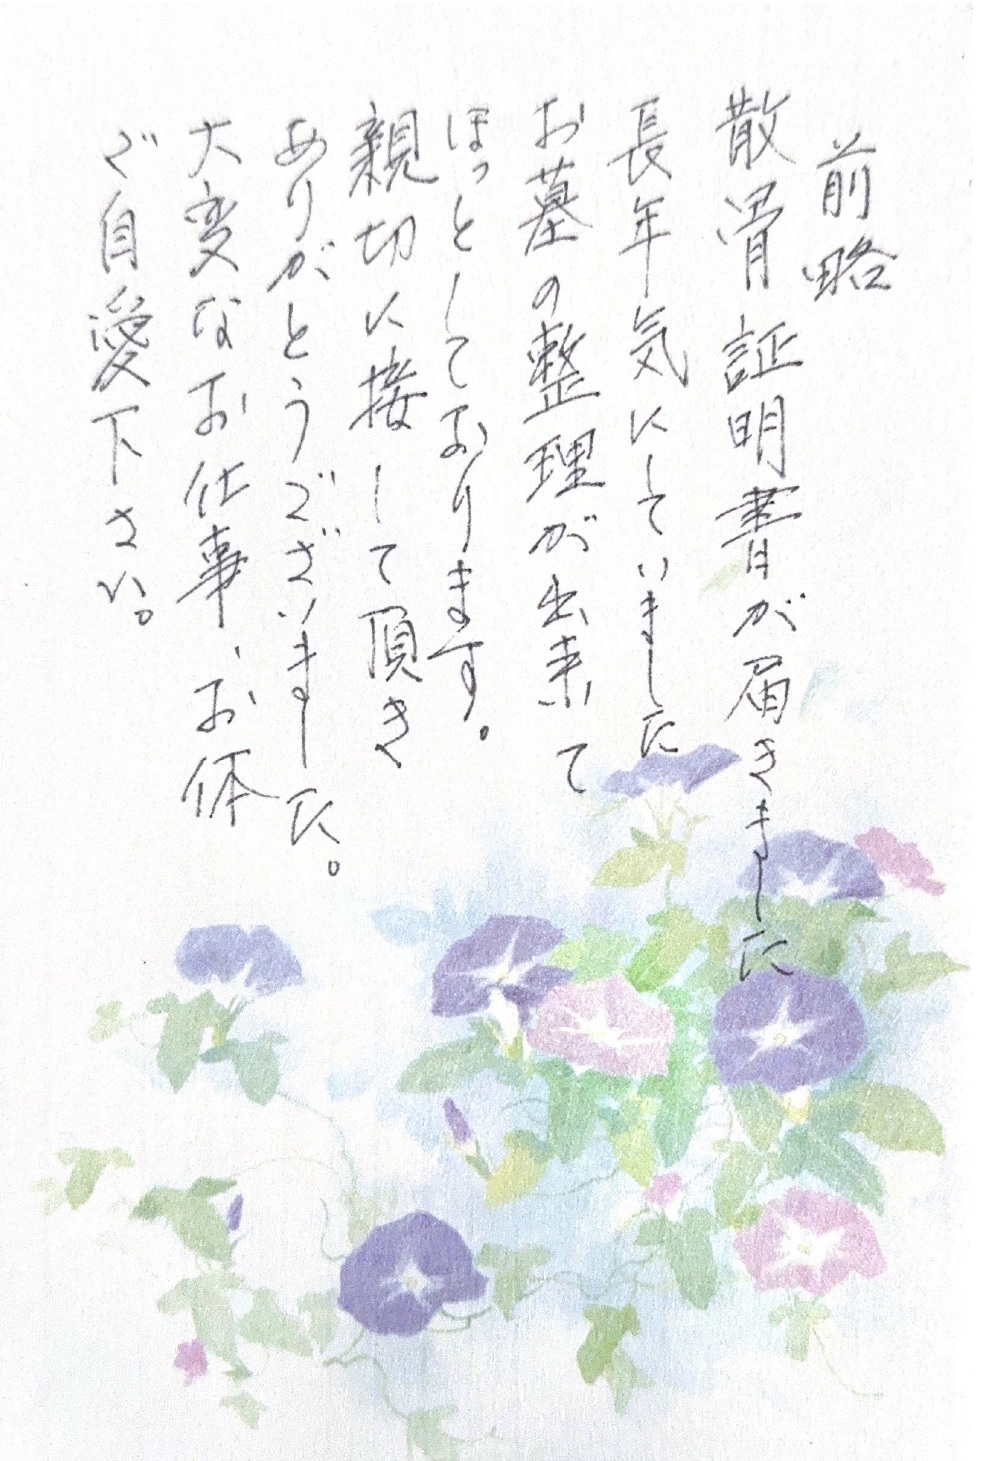 前略
散骨証明書が届きました
長年気にしていました
お墓の整理が出来て
ほっとしております。
親切に接して頂き
ありがとうございました。
大変なお仕事、お体
ご自愛下さい。